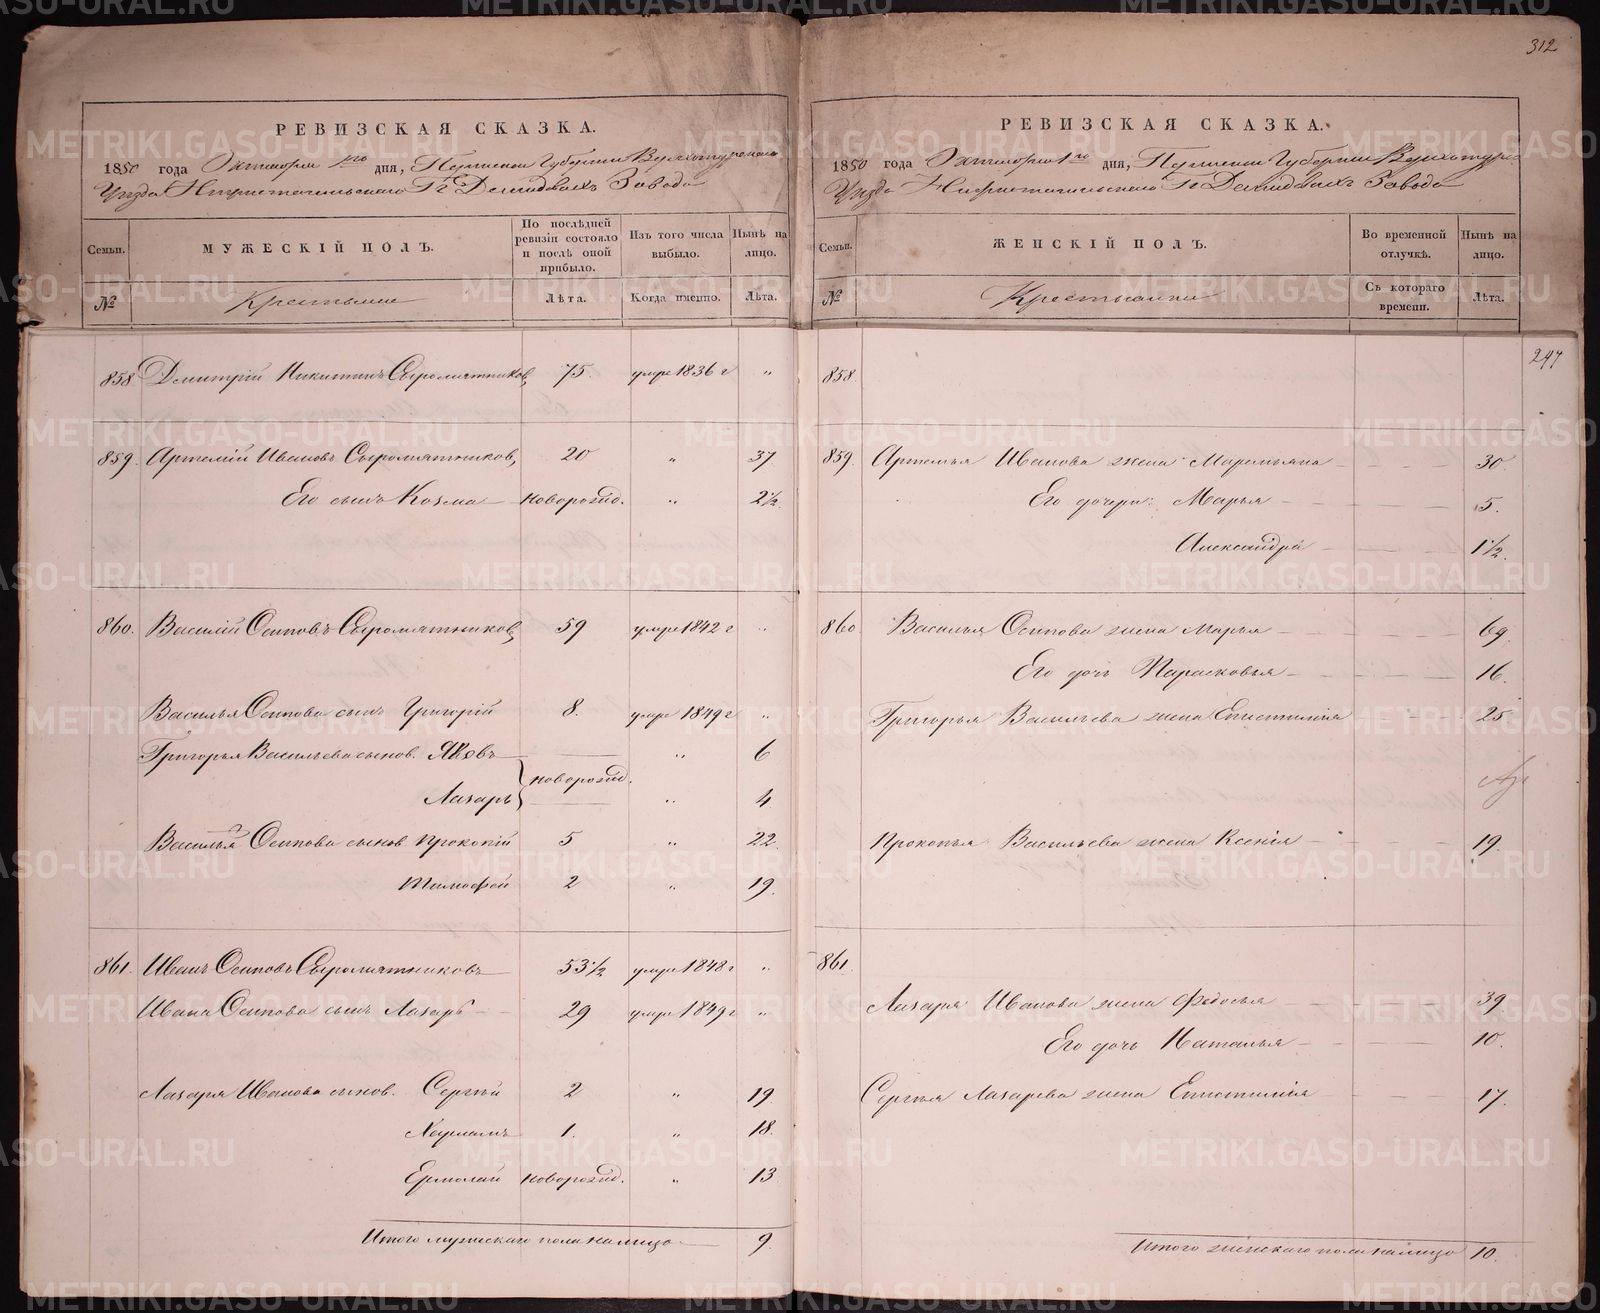 312
РЕВИЗСКАЯ СКАЗКА.
1850 года Октября 1го дня, Пермской Губернии Верхотурскаго
Уѣзда Нижнетагильскаго Гг Демидовыхъ Завода
Семьи. МУЖЕСКІЙ ПОЛЪ. По послѣдней ревизіи состояло и послѣ оной прибыло. Изъ того числа выбыло. Нынѣ на лицо.
№ Крестьяне Лѣта. Когда именно. Лѣта.
858 Дмитрій Никитинъ Сыромятников, 75. умре 1836 г "
859. Артемій Ивановъ Сыромятников, 20 " 37
Его сынъ Козма новорожд. " 2 1/2
860. Василій Осиповъ Сыромятников, 59 умре 1842 г "
Василья Осипова сынъ Григорій 8. умре 1849 г "
Григорья Васильева сынов. Яковъ " 6
новорожд.
Лазарь " 4
Василья Осипова сынов Прокопій 5 " 22
Тимофей 2 " 19.
861. Иванъ Осиповъ Сыромятниковъ 53 1/2 умре 1848 г "
Ивана Осипова сынъ Лазарь 29 умре 1849 г "
Лазаря Иванова сынов. Сергѣй 2 " 19
1. " 18.
Ермолай новорожд. " 13
Итого мужескаго пола на лицо 9.
РЕВИЗСКАЯ СКАЗКА.
1850 года Октября 1го дня, Пермской Губернии Верхотурс-
Уѣзда Нижнетагильскаго Гг Демидовыхъ Завода
Семьи. ЖЕНСКІЙ ПОЛЪ. Во временной отлучкѣ. Нынѣ на лицо.
№ Крестьянки Съ котораго времени. Лѣта.
247
858.
859. Артемья Иванова жена Маремьяна 30.
Его дочери: Марья 5.
Александра 1 1/2.
860 Василья Осипова жена Марья 69
Его дочь Парасковья 16.
Григорья Васильева жена Епистимія 25
Прокопья Васильева жена Ксенія 19.
861.
Лазаря Иванова жена Федосья 39
Его дочь Наталья 10.
Сергѣя Лазарева жена Епистимія 17.
Итого женскаго пола на лицо 10.
METRIKI.GASO-URAL.RU